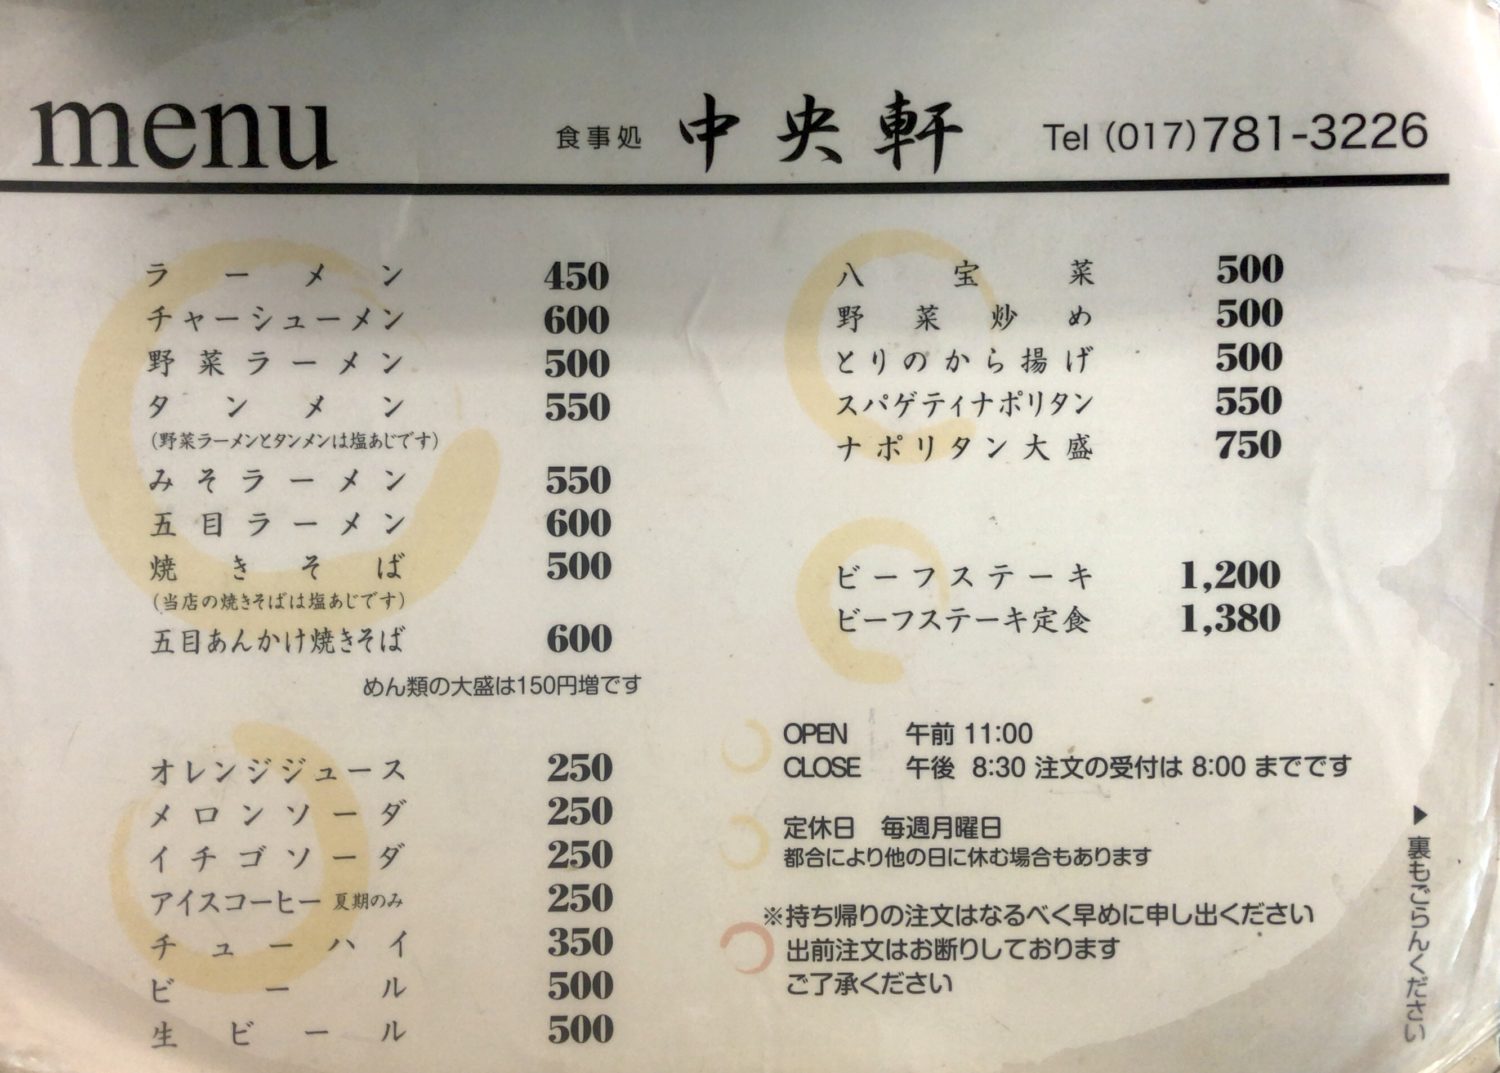 menu
食事処 中央軒 Tel (017)781-3226
ラーメン 450
チャーシューメン 600
野菜ラーメン 500
タンメン 550
(野菜ラーメンとタンメンは塩あじです)
みそラーメン 550
五目ラーメン 600
焼きそば 500
(当店の焼きそばは塩あじです)
五目あんかけ焼きそば 600
めん類の大盛は150円増です
オレンジジュース 250
メロンソーダ 250
イチゴソーダ 250
アイスコーヒー 夏期のみ 250
チューハイ 350
ビール 500
生ビール 500
八宝菜 500
野菜炒め 500
とりのから揚げ 500
スパゲティナポリタン 550
ナポリタン大盛 750
ビーフステーキ 1,200
ビーフステーキ定食 1,380
OPEN 午前 11:00
CLOSE 午後 8:30 注文の受付は 8:00 までです
定休日 毎週月曜日
都合により他の日に休む場合もあります
※持ち帰りの注文はなるべく早めに申し出ください
出前注文はお断りしております
ご了承ください
▶裏もごらんください